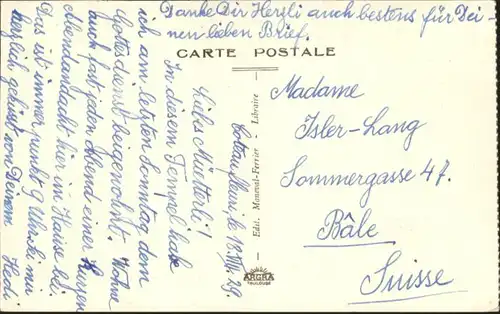 Danke Dir Herzli auch bestens für Dei-
nen lieben Brief.
CARTE POSTALE
Liebs Mütterli!
In diesem Tempel habe
ich am letzten Sonntag dem
Gottesdienst beigewohnt. Wohne
auch fast jeden Abend einer kurzen
Abendandacht hier im Hause bei.
Das ist immer punkt 9 Uhr. Sei mir
herzlich gegrüsst von Deinem Hedi.
Edit. Monéval-Ferrier - Libraire
Madame
Isler-Lang
Sommergasse 47.
Bâle
Suisse
ARGRA
TOULOUSE